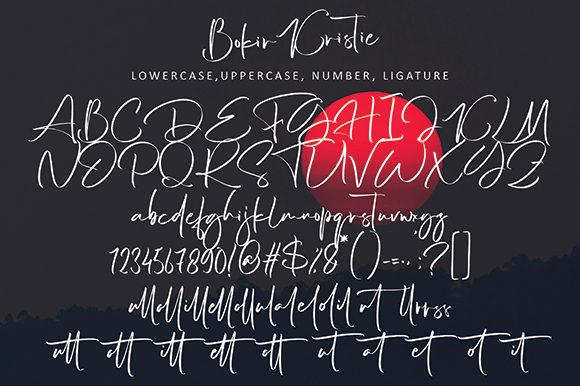 Bokir Kristie
LOWERCASE,UPPERCASE, NUMBER, LIGATURE
ABCDEFGHIJKLM
NOPQRSTUVWXYZ
abcdefghijklmnopqrstuvwxyz
1234567890!@#$%&*()-=..;:?[]
att ett itt ett ott ut at et ot it